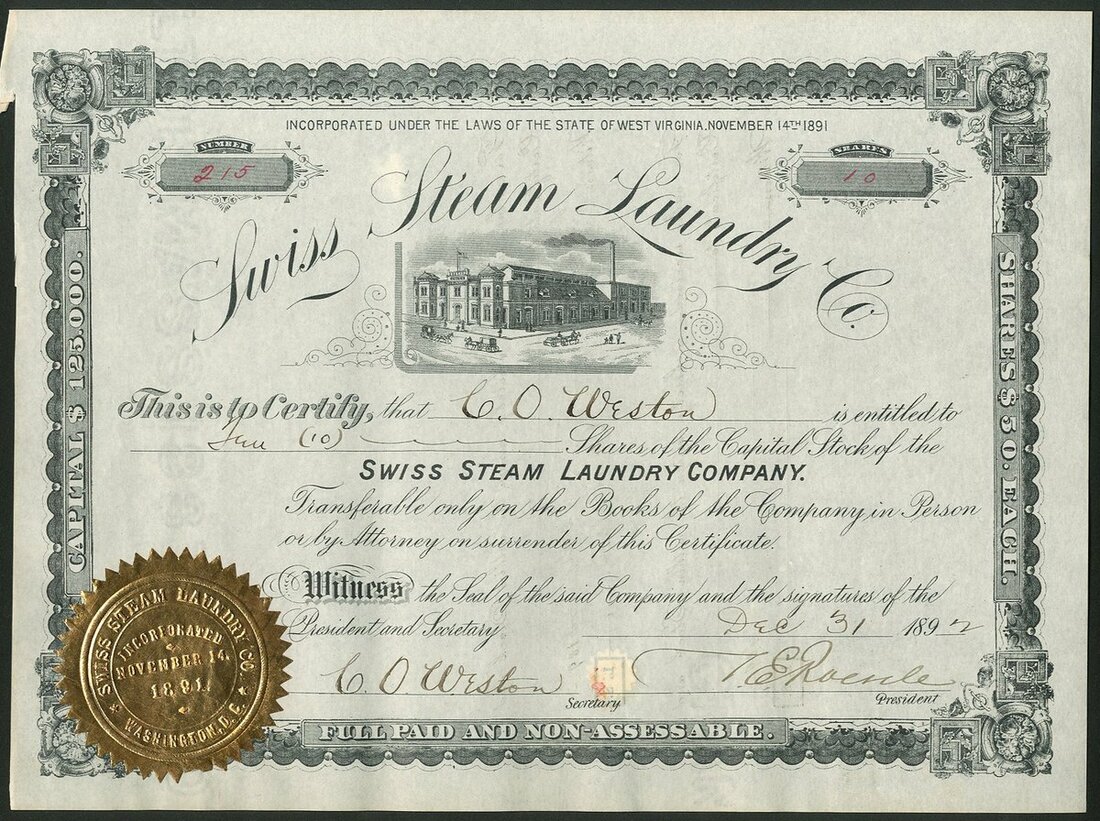 INCORPORATED UNDER THE LAWS OF THE STATE OF WEST VIRGINIA, NOVEMBER 14TH 1891
NUMBER
215
SHARES
10
Swiss Steam Laundry Co.
CAPITAL $ 125.000.
SHARES $ 50. EACH.
This is to Certify, that C. O. Weston is entitled to
Ten (10) Shares of the Capital Stock of the
SWISS STEAM LAUNDRY COMPANY.
Transferable only on the Books of the Company in Person
or by Attorney on surrender of this Certificate.
Witness the Seal of the said Company and the signatures of the
President and Secretary Dec 31 1892
C O Weston
Secretary
President
SWISS STEAM LAUNDRY CO.
INCORPORATED
NOVEMBER 14.
1891.
WASHINGTON, D. C.
FULL PAID AND NON-ASSESSABLE.